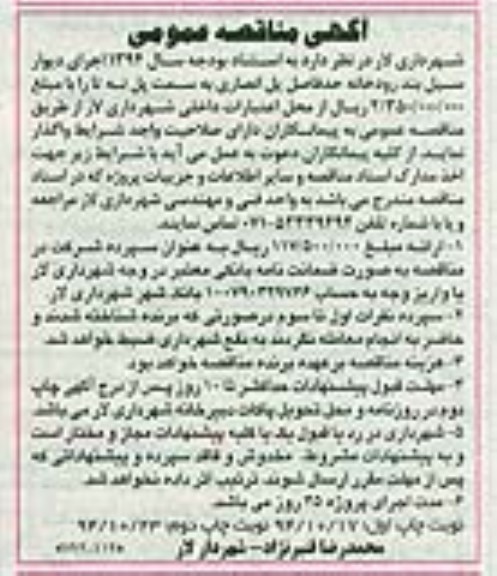 آگهی مناقصه عمومی
شهرداری لار در نظر دارد به استناد بودجه سال ۱۳۹۴ اجرای دیوار
سیل بند رودخانه حدفاصل پل انصاری به سمت پل را با مبلغ
ریال از محل اعتبارات داخلی شهرداری لار از طریق
مناقصه عمومی به پیمانکاران دارای صلاحیت واجد شرایط واگذار
نماید. از کلیه پیمانکاران دعوت به عمل می آید با شرایط زیر جهت
اخذ مدارک اسناد مناقصه و سایر اطلاعات و جزییات پروژه که در اسناد
مناقصه مندرج می باشد به واحد فنی و مهندسی شهرداری لار مراجعه
و یا با شماره تلفن تماس نمایند.
۱- ارائه مبلغ ۱۱۷/۵۰۰/۰۰۰ ریال به عنوان سپرده شرکت در
مناقصه به صورت ضمانت نامه بانکی معتبر در وجه شهرداری لار
یا واریز وجه به حساب بانک شهر شهرداری لار.
۲- سپرده نفرات اول تا سوم درصورتی که برنده شناخته شدند و
حاضر به انجام معامله نگردند به نفع شهرداری ضبط خواهد شد.
۳- هزینه مناقصه بر عهده برنده مناقصه خواهد بود.
۴- مهلت قبول پیشنهادات حداکثر تا ۱۰ روز پس از درج آگهی چاپ
دوم در روزنامه و محل تحویل پاکات دبیرخانه شهرداری لار می باشد.
۵- شهرداری در رد یا قبول یک یا کلیه پیشنهادات مجاز و مختار است
و به پیشنهادات مشروط، مخدوش و فاقد سپرده و پیشنهاداتی که
پس از مهلت مقرر ارسال شوند، ترتیب اثر داده نخواهد شد.
۶- مدت اجرای پروژه ۴۵ روز می باشد.
نوبت چاپ اول: ۹۴/۱۰/۱۷ نوبت چاپ دوم: ۹۴/۱۰/۲۳
محمدرضا قنبرنژاد - شهردار لار